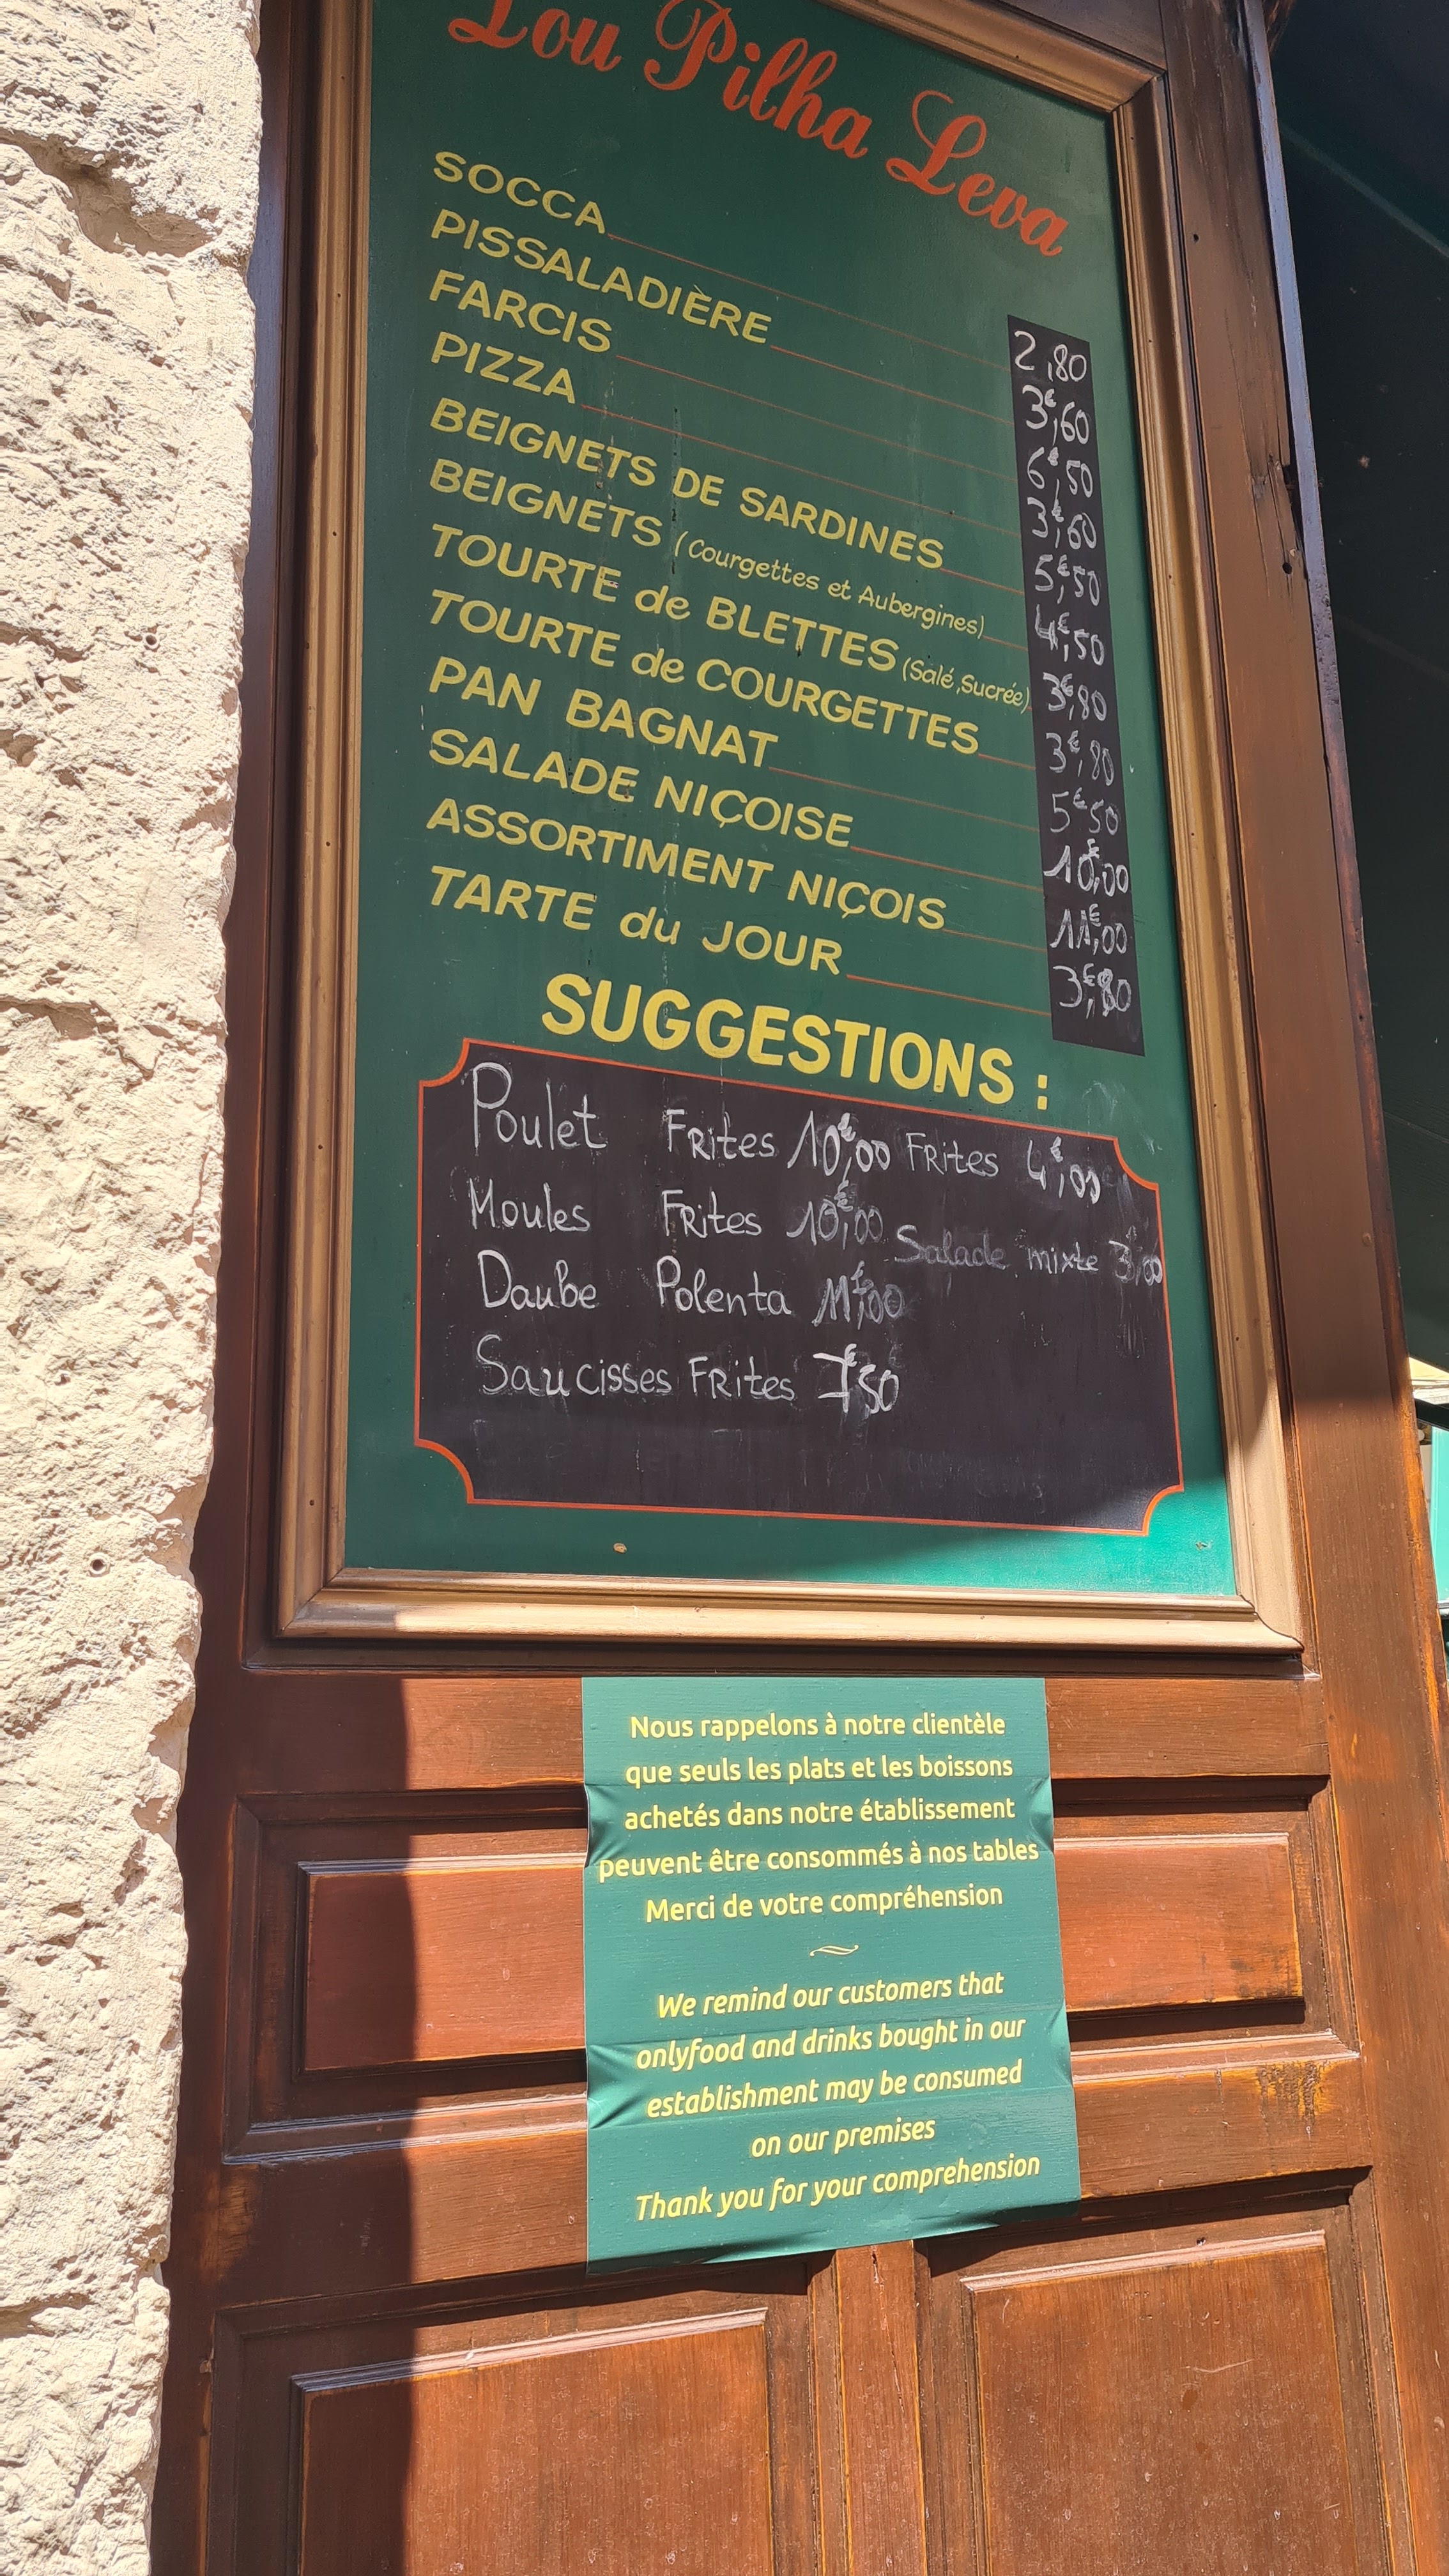 Lou Pilha Leva
SOCCA 2,80
PISSALADIÈRE 3€,60
FARCIS 6€,50
PIZZA 3€,60
BEIGNETS DE SARDINES 5€,50
BEIGNETS (Courgettes et Aubergines) 4€,50
TOURTE de BLETTES (Salé,Sucrée) 3€,80
TOURTE de COURGETTES 3€,80
PAN BAGNAT 5€50
SALADE NIÇOISE 10€,00
ASSORTIMENT NIÇOIS 11€,00
TARTE du JOUR 3€,80
SUGGESTIONS :
Poulet Frites 10€,00 Frites 4€,00
Moules Frites 10€,00
Salade mixte 3€,00
Daube Polenta 11€,00
Saucisses Frites 7€,50
Nous rappelons à notre clientèle
que seuls les plats et les boissons
achetés dans notre établissement
peuvent être consommés à nos tables
Merci de votre compréhension
We remind our customers that
onlyfood and drinks bought in our
establishment may be consumed
on our premises
Thank you for your comprehension